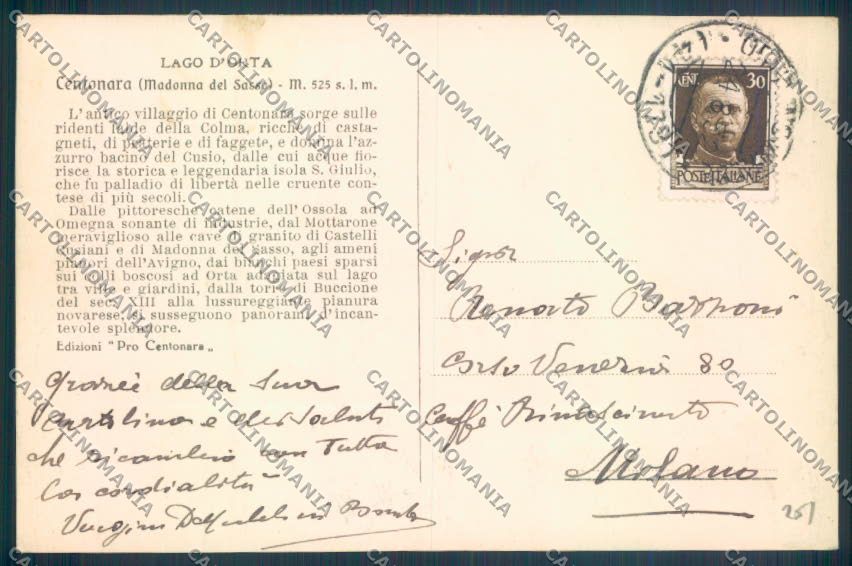 LAGO D'ORTA
Centonara (Madonna del Sasso) - M. 525 s. l. m.
L'antico villaggio di Centonara sorge sulle
ridenti falde della Colma, ricche di casta-
gneti, di pinterie e di faggete, e domina l'az-
zurro bacino del Cusio, dalle cui acque fio-
risce la storica e leggendaria isola S. Giulio,
che fu palladio di libertà nelle cruente con-
tese di più secoli.
Dalle pittoresche catene dell'Ossola ad
Omegna sonante di industrie, dal Mottarone
meraviglioso alle cave di granito di Castelli
Cusiani e di Madonna del Sasso, agli ameni
pianori dell'Avigno, dai bianchi paesi sparsi
sui colli boscosi ad Orta adagiata sul lago
tra ville e giardini, dalla torre di Buccione
del sec. XIII alla lussureggiante pianura
novarese, si susseguono panorami d'incan-
tevole splendore.
Edizioni "Pro Centonara„
CENT 30
POSTE ITALIANE
Signor
Renato
Corso Venezia 80
Caffè Rinascimento
Milano
Grazie della Sua
cartolina e dei saluti
che ricambio con tutta
cordialità
25/
CARTOLINOMANIA